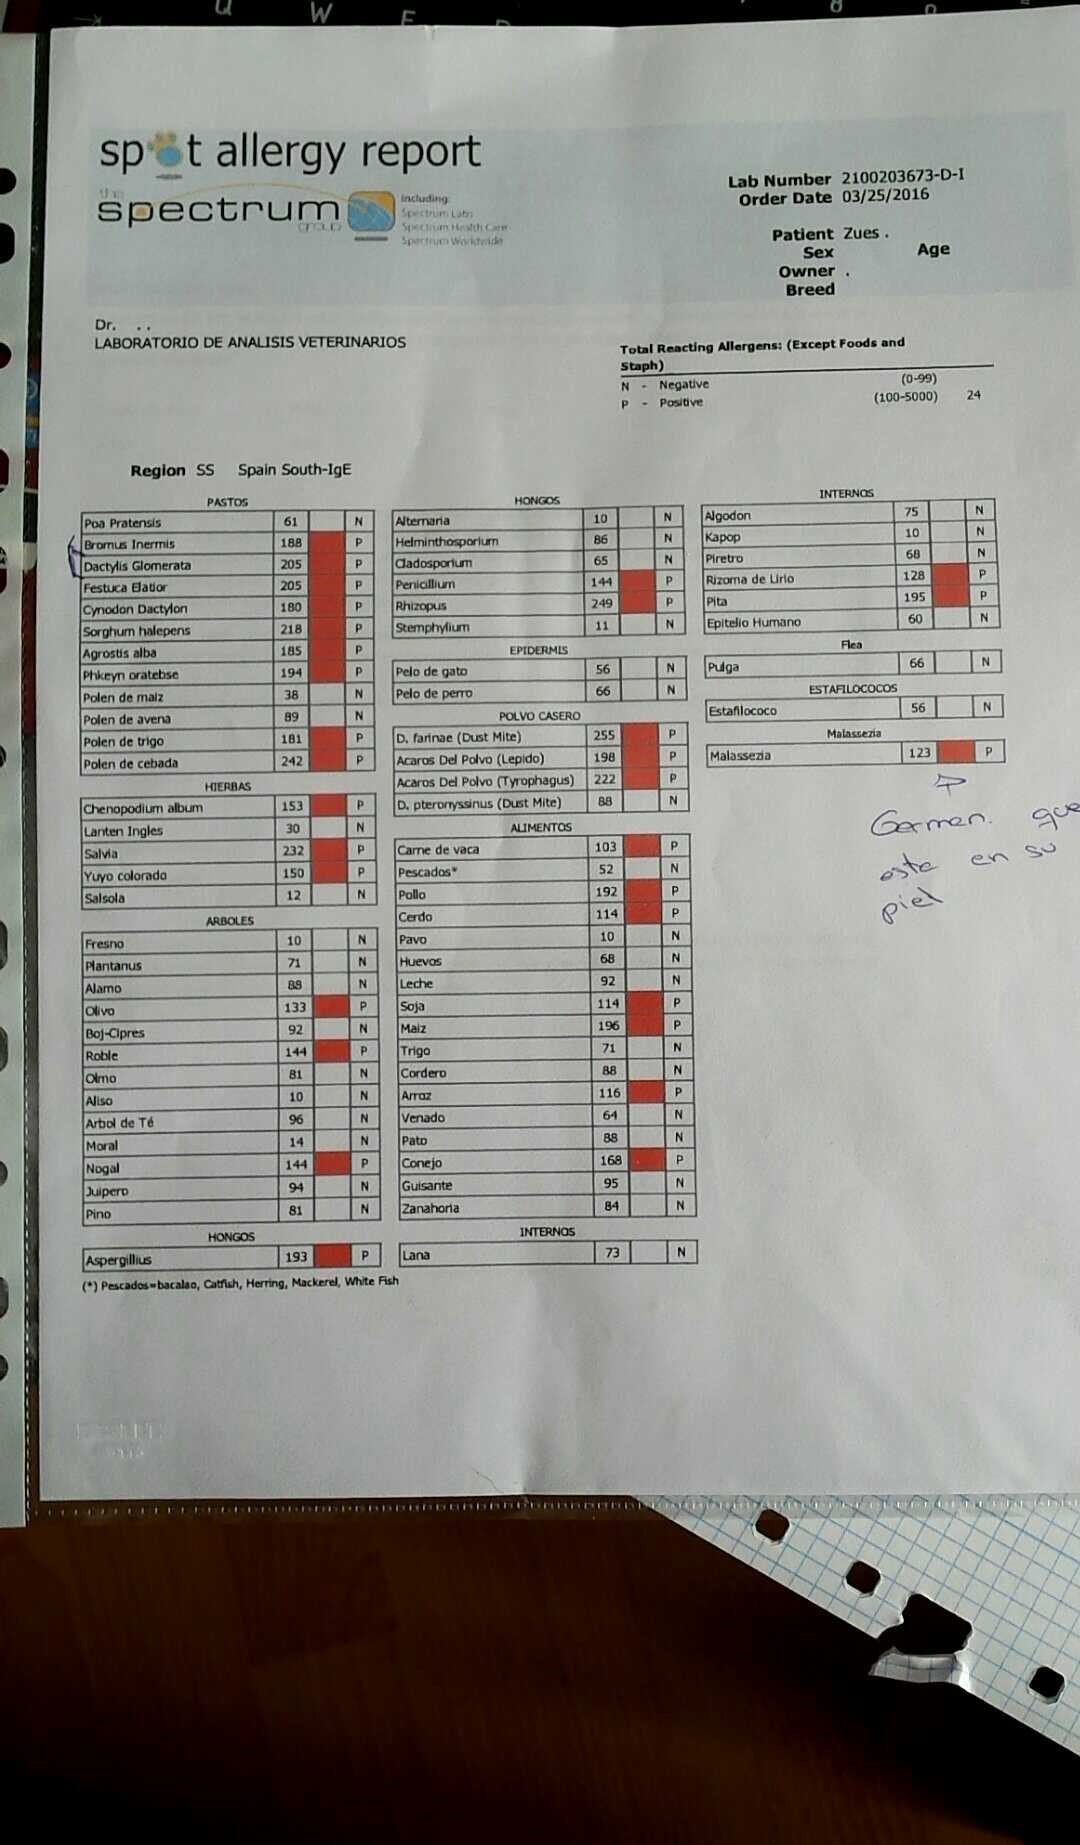 Q W E
spot allergy report
the
spectrum
group
Including:
Spectrum Labs
Spectrum Health Care
Spectrum Worldwide
Lab Number 2100203673-D-I
Order Date 03/25/2016
Patient Zues .
Sex Age
Owner .
Breed
Dr. . .
LABORATORIO DE ANALISIS VETERINARIOS
Total Reacting Allergens: (Except Foods and
Staph)
N - Negative (0-99)
P - Positive (100-5000) 24
Region SS Spain South-IgE
PASTOS
Poa Pratensis 61 N
Bromus Inermis 188 P
Dactylis Glomerata 205 P
Festuca Elatior 205 P
Cynodon Dactylon 180 P
Sorghum halepens 218 P
Agrostis alba 185 P
Phkeyn oratebse 194 P
Polen de maiz 38 N
Polen de avena 89 N
Polen de trigo 181 P
Polen de cebada 242 P
HIERBAS
Chenopodium album 153 P
Lanten Ingles 30 N
Salvia 232 P
Yuyo colorado 150 P
Salsola 12 N
ARBOLES
Fresno 10 N
Plantanus 71 N
Alamo 88 N
Olivo 133 P
Boj-Cipres 92 N
Roble 144 P
Olmo 81 N
Aliso 10 N
Arbol de Té 96 N
Moral 14 N
Nogal 144 P
Juipero 94 N
Pino 81 N
HONGOS
Aspergillius 193 P
(*) Pescados=bacalao, Catfish, Herring, Mackerel, White Fish
HONGOS
Alternaria 10 N
Helminthosporium 86 N
Cladosporium 65 N
Penicillium 144 P
Rhizopus 249 P
Stemphylium 11 N
EPIDERMIS
Pelo de gato 56 N
Pelo de perro 66 N
POLVO CASERO
D. farinae (Dust Mite) 255 P
Acaros Del Polvo (Lepido) 198 P
Acaros Del Polvo (Tyrophagus) 222 P
D. pteronyssinus (Dust Mite) 88 N
ALIMENTOS
Carne de vaca 103 P
Pescados* 52 N
Pollo 192 P
Cerdo 114 P
Pavo 10 N
Huevos 68 N
Leche 92 N
Soja 114 P
Maiz 196 P
Trigo 71 N
Cordero 88 N
Arroz 116 P
Venado 64 N
Pato 88 N
Conejo 168 P
Guisante 95 N
Zanahoria 84 N
INTERNOS
Lana 73 N
INTERNOS
Algodon 75 N
Kapop 10 N
Piretro 68 N
Rizoma de Lirio 128 P
Pita 195 P
Epitelio Humano 60 N
Flea
Pulga 66 N
ESTAFILOCOCOS
Estafilococo 56 N
Malassezia
Malassezia 123 P
Germen. que
esta en su
piel